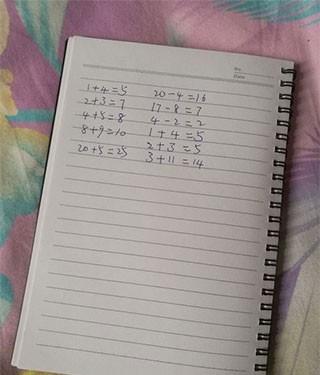 No.
Date
1+4=5 20-4=16
2+3=7 17-8=7
4+5=8 4-2=2
8+9=10 1+4=5
20+5=25 2+3=5
3+11=14